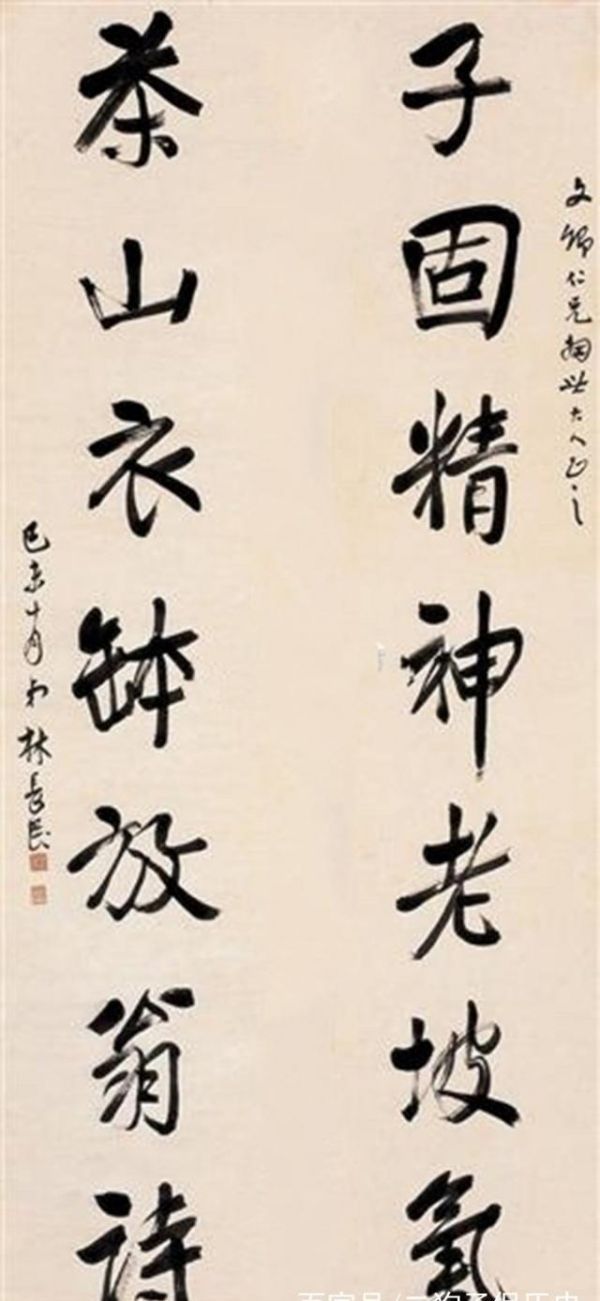 文錦仁兄
大人正之
子固精神老坡氣
茶山衣缽放翁詩
己未十月
林長民